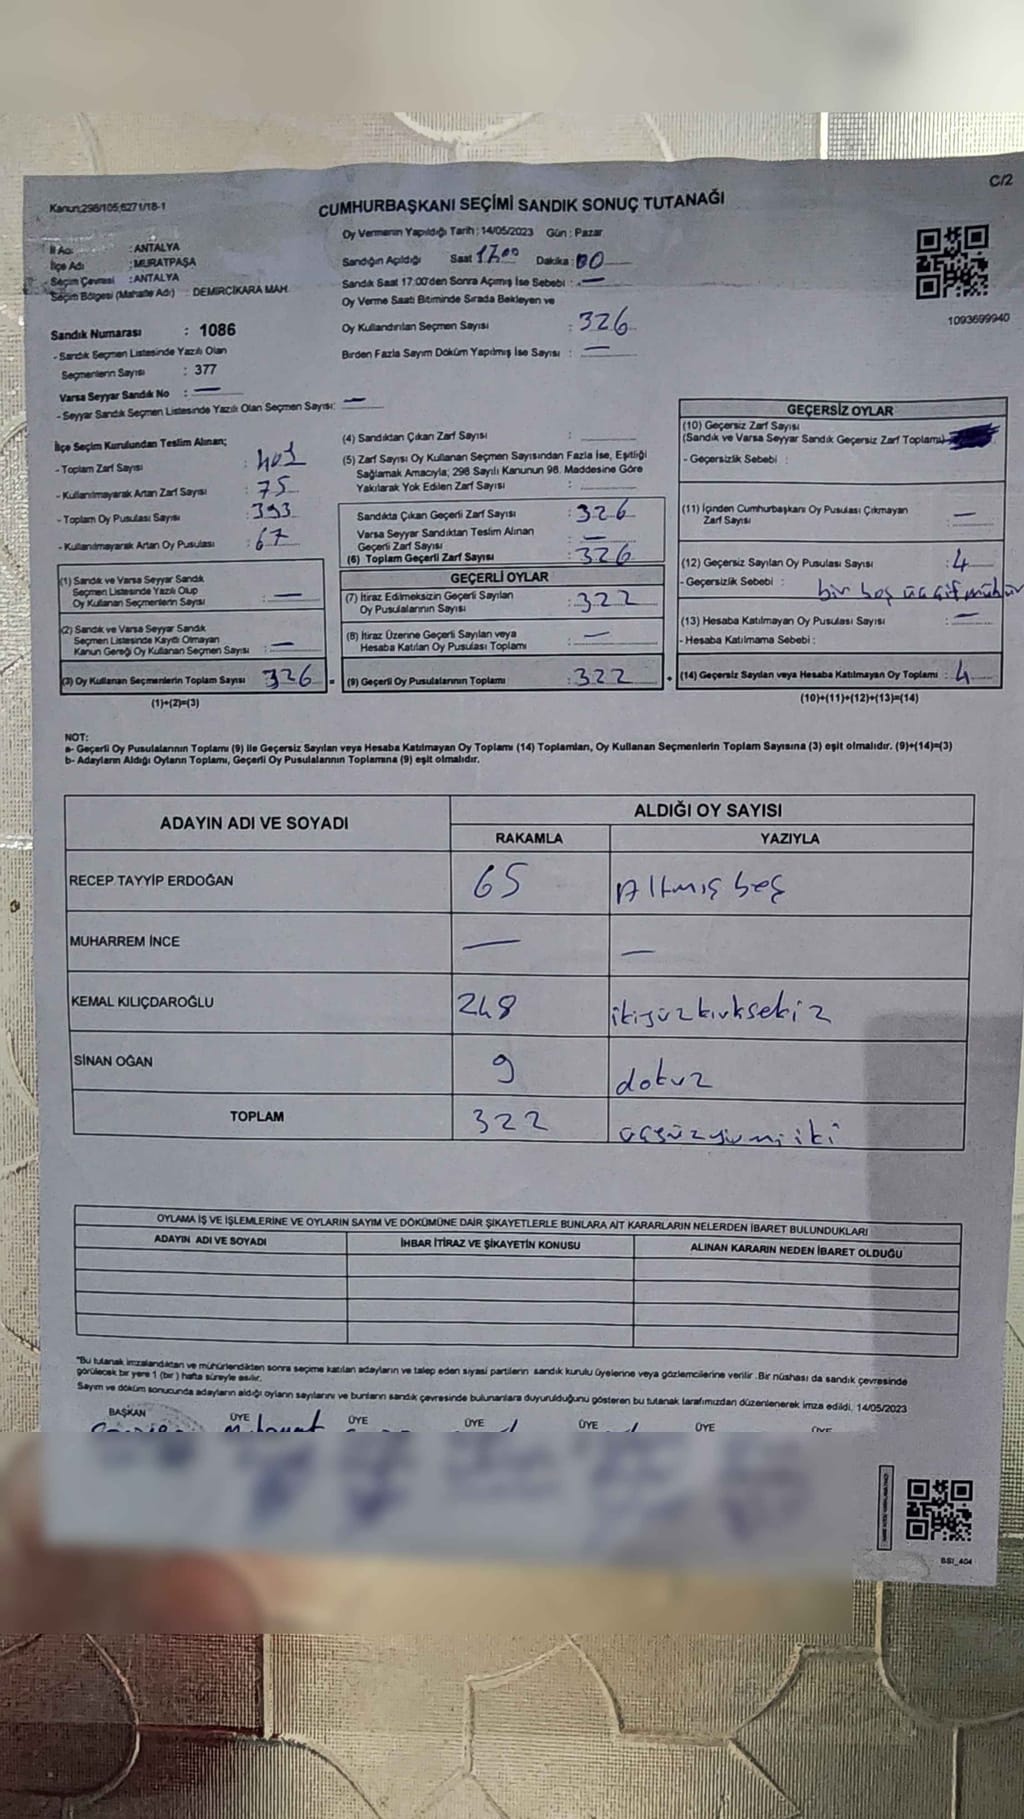 C/2
Kanun;298/105;6271/18-1
CUMHURBAŞKANI SEÇİMİ SANDIK SONUÇ TUTANAĞI
Oy Vermenin Yapıldığı Tarih : 14/05/2023 Gün : Pazar
İl Adı : ANTALYA
İlçe Adı : MURATPAŞA
Seçim Çevresi : ANTALYA
Seçim Bölgesi (Mahalle Adı) : DEMİRCİKARA MAH.
Sandığın Açıldığı Saat 17.00 Dakika : 00
Sandık Saat 17:00'den Sonra Açımış İse Sebebi : —
Oy Verme Saati Bitiminde Sırada Bekleyen ve
Oy Kullandırılan Seçmen Sayısı : 326
Birden Fazla Sayım Döküm Yapılmış İse Sayısı : —
1093699940
Sandık Numarası : 1086
- Sandık Seçmen Listesinde Yazılı Olan
Seçmenlerin Sayısı : 377
Varsa Seyyar Sandık No : —
- Seyyar Sandık Seçmen Listesinde Yazılı Olan Seçmen Sayısı: —
İlçe Seçim Kurulundan Teslim Alınan;
- Toplam Zarf Sayısı : 401
- Kullanılmayarak Artan Zarf Sayısı : 75
- Toplam Oy Pusulası Sayısı : 393
- Kullanılmayarak Artan Oy Pusulası : 67
(1) Sandık ve Varsa Seyyar Sandık
Seçmen Listesinde Yazılı Olup
Oy Kullanan Seçmenlerin Sayısı : —
(2) Sandık ve Varsa Seyyar Sandık
Seçmen Listesinde Kayıtlı Olmayan
Kanun Gereği Oy Kullanan Seçmen Sayısı : —
(3) Oy Kullanan Seçmenlerin Toplam Sayısı 326
(1)+(2)=(3)
(4) Sandıktan Çıkan Zarf Sayısı :
(5) Zarf Sayısı Oy Kullanan Seçmen Sayısından Fazla İse, Eşitliği
Sağlamak Amacıyla; 298 Sayılı Kanunun 98. Maddesine Göre
Yakılarak Yok Edilen Zarf Sayısı :
Sandıkta Çıkan Geçerli Zarf Sayısı : 326
Varsa Seyyar Sandıktan Teslim Alınan
Geçerli Zarf Sayısı : —
(6) Toplam Geçerli Zarf Sayısı : 326
GEÇERLİ OYLAR
(7) İtiraz Edilmeksizin Geçerli Sayılan
Oy Pusulalarının Sayısı : 322
(8) İtiraz Üzerine Geçerli Sayılan veya
Hesaba Katılan Oy Pusulası Toplamı : —
= (9) Geçerli Oy Pusulalarının Toplamı : 322
GEÇERSİZ OYLAR
(10) Geçersiz Zarf Sayısı
(Sandık ve Varsa Seyyar Sandık Geçersiz Zarf Toplamı)
- Geçersizlik Sebebi :
(11) İçinden Cumhurbaşkanı Oy Pusulası Çıkmayan
Zarf Sayısı : —
(12) Geçersiz Sayılan Oy Pusulası Sayısı : 4
- Geçersizlik Sebebi : bir boş üç çift mühür
(13) Hesaba Katılmayan Oy Pusulası Sayısı : —
- Hesaba Katılmama Sebebi :
(14) Geçersiz Sayılan veya Hesaba Katılmayan Oy Toplamı : 4
(10)+(11)+(12)+(13)=(14)
NOT:
a- Geçerli Oy Pusulalarının Toplamı (9) ile Geçersiz Sayılan veya Hesaba Katılmayan Oy Toplamı (14) Toplamları, Oy Kullanan Seçmenlerin Toplam Sayısına (3) eşit olmalıdır. (9)+(14)=(3)
b- Adayların Aldığı Oyların Toplamı, Geçerli Oy Pusulalarının Toplamına (9) eşit olmalıdır.
ADAYIN ADI VE SOYADI
ALDIĞI OY SAYISI
RAKAMLA YAZIYLA
RECEP TAYYİP ERDOĞAN 65 Altmış beş
MUHARREM İNCE — —
KEMAL KILIÇDAROĞLU 248 ikiyüzkırksekiz
SİNAN OĞAN 9 dokuz
TOPLAM 322 üçyüzyirmi iki
OYLAMA İŞ VE İŞLEMLERİNE VE OYLARIN SAYIM VE DÖKÜMÜNE DAİR ŞİKAYETLERLE BUNLARA AİT KARARLARIN NELERDEN İBARET BULUNDUKLARI
ADAYIN ADI VE SOYADI İHBAR İTİRAZ VE ŞİKAYETİN KONUSU ALINAN KARARIN NEDEN İBARET OLDUĞU
"Bu tutanak imzalandıktan ve mühürlendikten sonra seçime katılan adayların ve talep eden siyasi partilerin sandık kurulu üyelerine veya gözlemcilerine verilir. Bir nüshası da sandık çevresinde
görülecek bir yere 1 (bir) hafta süreyle asılır.
Sayım ve döküm sonucunda adayların aldığı oyların sayılarını ve bunların sandık çevresinde bulunanlara duyurulduğunu gösteren bu tutanak tarafımızdan düzenlenerek imza edildi. 14/05/2023
BAŞKAN ÜYE ÜYE ÜYE ÜYE ÜYE ÜYE
BSI_404